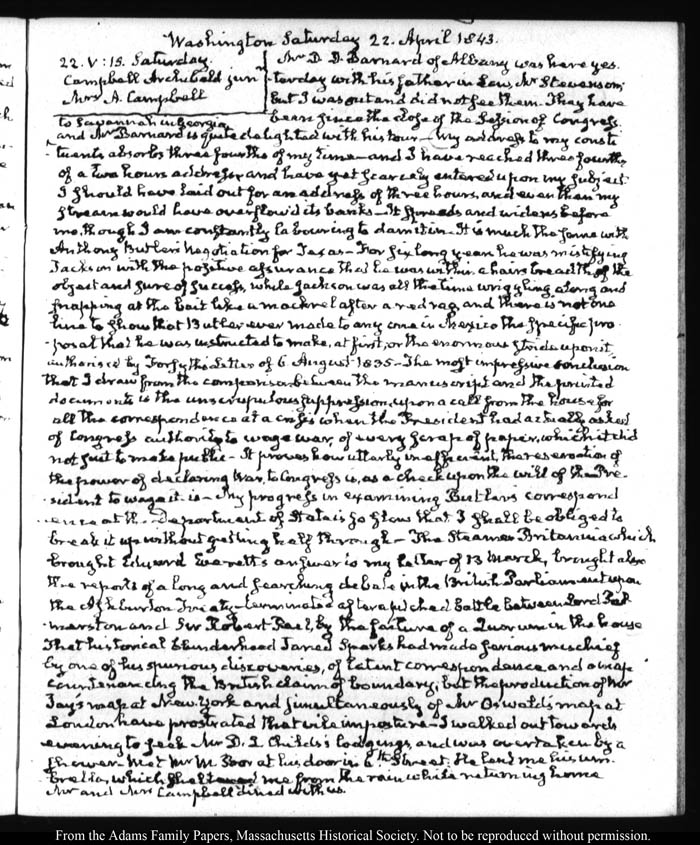 Washington Saturday 22. April 1843.
22. V: 15. Saturday.
Campbell Archibald jun.r
Mrs A. Campbell
Mr D. D. Barnard of Albany was here yes-
terday with his father in Law, Mr Stevenson;
but I was out and did not see them. They have
been since the close of the Session of Congress
to Savannah in Georgia
and Mr Barnard is quite delighted with his tour— My address to my consti-
tuents absorbs three fourths of my time—and I have reached three fourths
of a two hours address and have yet scarcely entered upon my subject.
I should have laid out for an address of three hours, and even then my
stream would have overflow'd its banks—It spreads and widens before
me, though I am constantly labouring to dam it in. It is much the same with
Anthony Butler's Negotiation for Texas—For six long years he was mistifying
Jackson with the positive assurance that he was within a hairs breadth of the
object and sure of success, while Jackson was all the time wriggling along and
snapping at the bait like a mackrel after a red rag, and there is not one
line to show that Butler ever made to any one in Mexico the specific pro-
posal that he was instructed to make, at first, or the enormous stride upon it
authorised by Forsyth's Letter of 6. August 1835—The most impressive conclusion
that I draw from the comparison between the manuscript and the printed
documents is the unscrupulous suppression, upon a call from the house for
all the correspondence at a crisis when the President had actually asked
of Congress authority to wage war, of every scrap of paper, which it did
not suit to make public—It proves how utterly inefficient, the reservation of
the power of declaring War, to Congress is, as a check upon the will of the Pre-
sident to wage it is—My progress in examining Butler's correspond
ence at the Department of State is so slow that I shall be obliged to
break it up without getting half through—The Steamer Britannia which
brought Edward Everett's answer to my letter of 13 March, brought also
the reports of a long and searching debate in the British Parliament upon
the Ashburton Treaty—terminated after a pitched battle between Lord Pal-
merston and Sir Robert Peel, by the failure of a Quorum in the house
That historical blunderhead Jared Sparks had made serious mischief
by one of his spurious discoveries, of latent correspondence and a map
countenancing the British claim of boundary; but the production of Mr
Jay's map at New York and simultaneously of Mr Oswald's map at
London have prostrated that vile imposture—I walked out towards
evening to seek Mr D. L Childs's lodgings, and was overtaken by a
shower. Met Mr M. Poor at his door in 6th Street. He lent me his um-
brella, which sheltered me from the rain while returning home
Mr and Mrs Campbell dined with us.
From the Adams Family Papers, Massachusetts Historical Society. Not to be reproduced without permission.